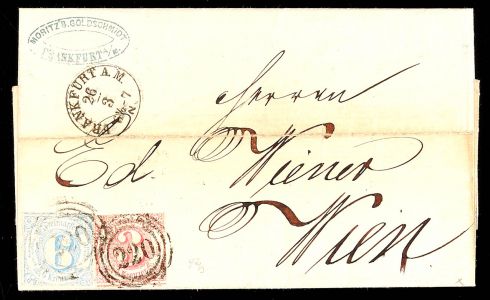 MORITZ B. GOLDSCHMIDT
FRANKFURT a/M.
FRANKFURT A. M.
26
3
6-7
N.
Herren
Ed. Wiener
Wien
6
3
220